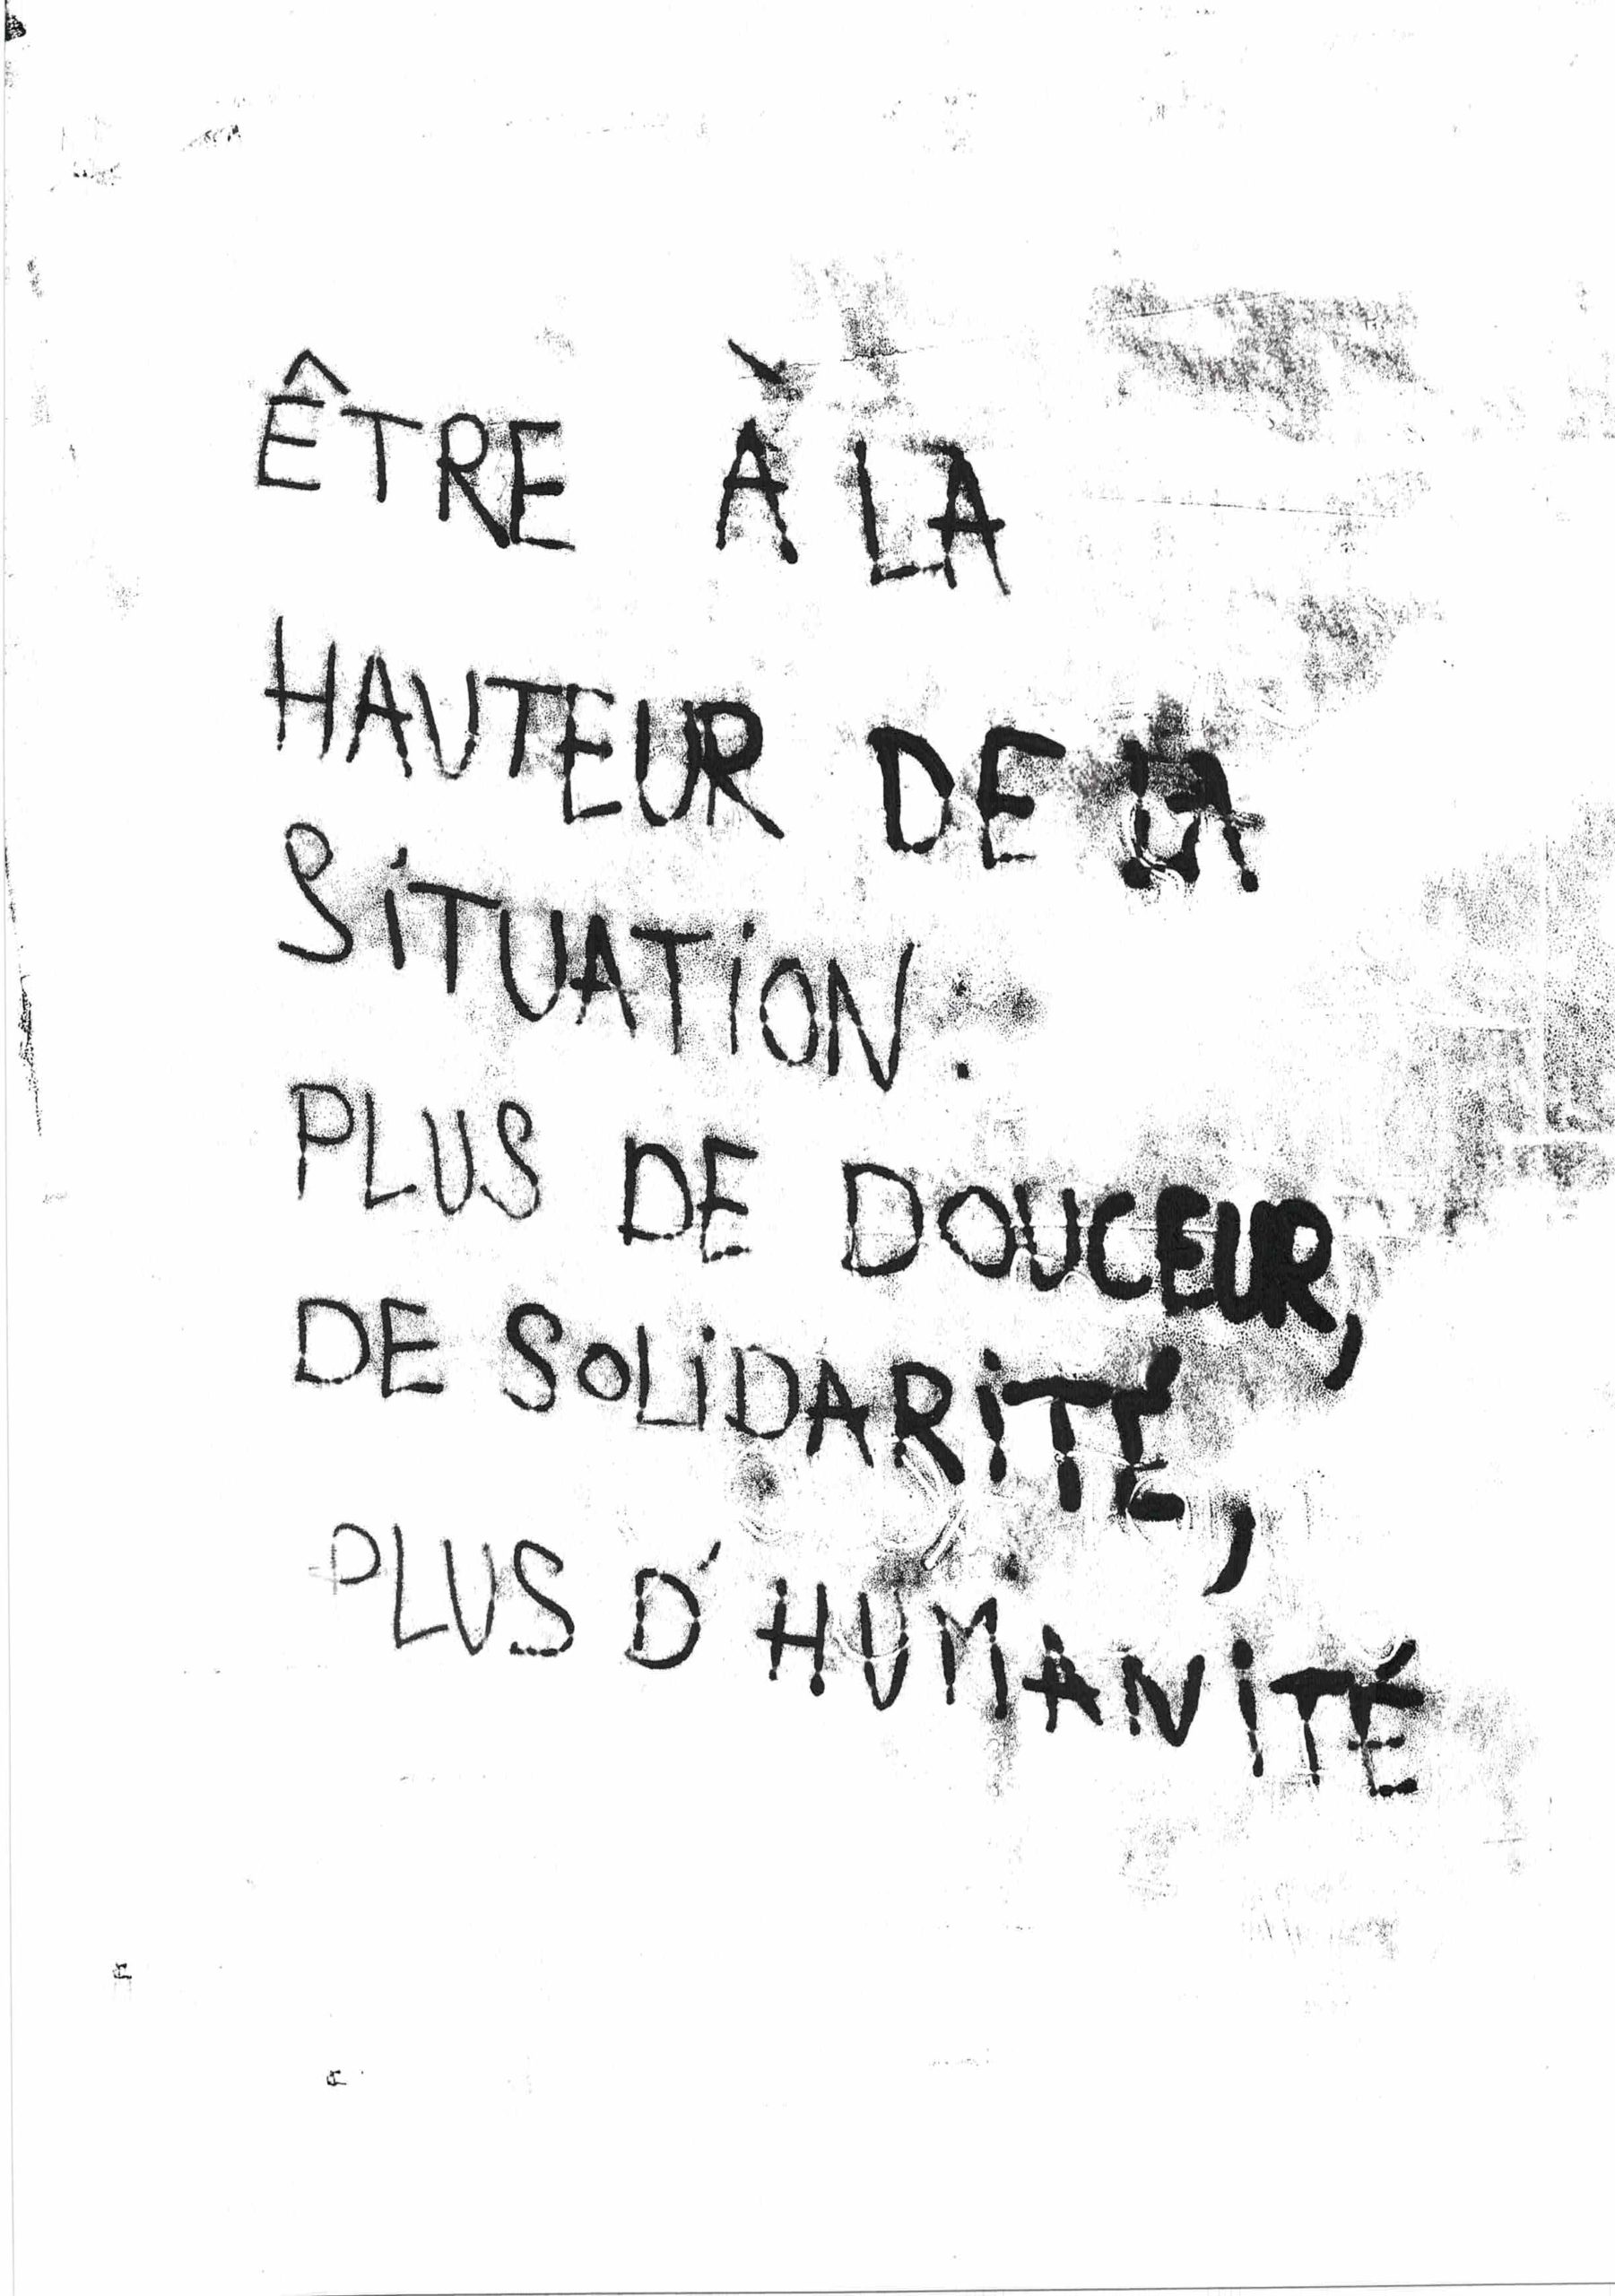 ÊTRE À LA
HAUTEUR DE LA
SiTUATiON :
PLUS DE DOUCEUR,
DE SOLiDARiTÉ,
PLUS D'HUMANiTÉ